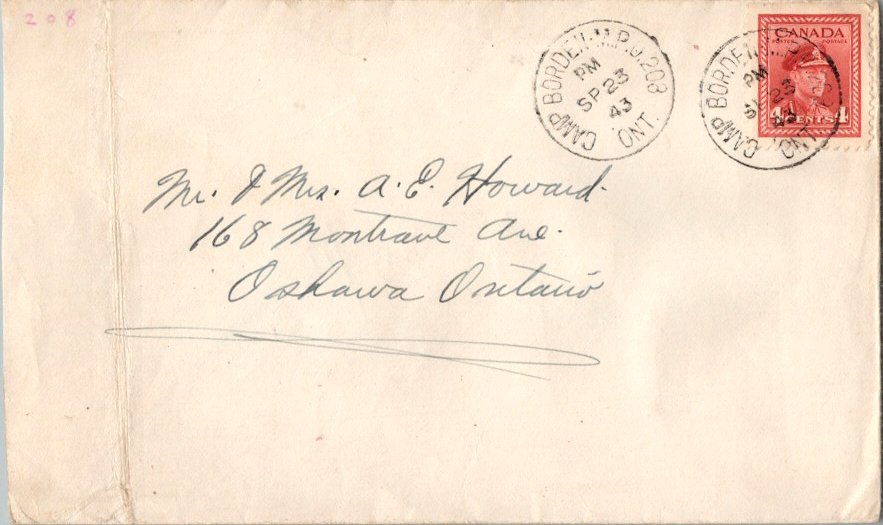 208
CAMP BORDEN. M.P.O. 208
PM
SP 23
43
ONT.
CAMP BORDEN. M.P.O.
PM
SP 23
43
ONT.
CANADA
POSTES POSTAGE
4 CENTS 4
Mr. & Mrs. A. E. Howard.
168 Montrave Ave.
Oshawa Ontario